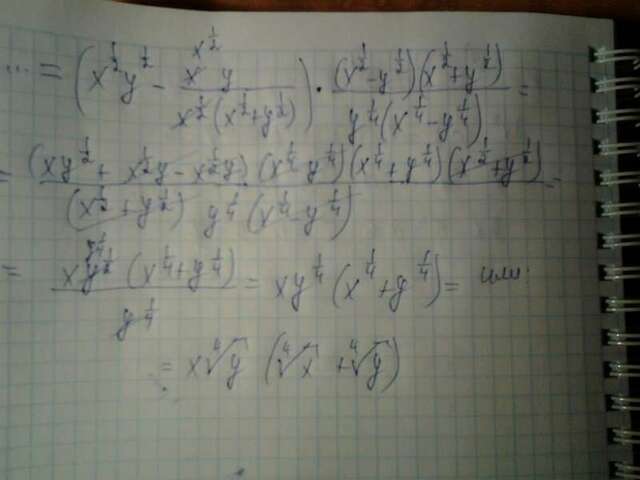 ... = (x^½ y^½ - x^½ x y / x^½ (x^½ + y^½)) · (x^½ - y^½)(x^½ + y^½) / y^¼ (x^¼ - y^¼) =
= (xy^½ + x^½ y - x^½ y) (x^¼ - y^¼)(x^¼ + y^¼)(x^½ + y^½) / (x^½ + y^½) y^¼ (x^¼ - y^¼) =
= x y^½ (x^¼ + y^¼) / y^¼ = xy^¼ (x^¼ + y^¼) = или:
= x ∜y (∜x + ∜y)